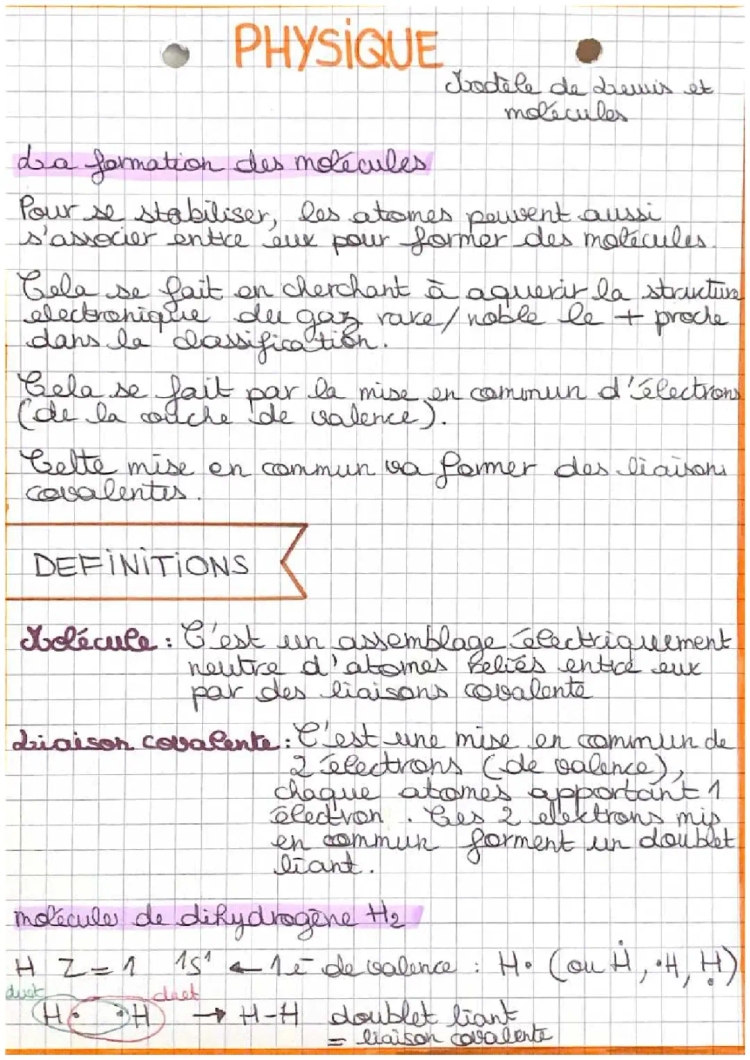 PHYSIQUE
Modèle de Lewis et
molécules
La formation des molécules
Pour se stabiliser, les atomes peuvent aussi
s'associer entre eux pour former des molécules.
Cela se fait en cherchant à aquerir la structure
electronique du gaz rare/noble le + proche
dans la classification.
Cela se fait par la mise en commun d'électrons
(de la couche de valence).
Cette mise en commun va former des liaisons
covalentes.
DEFINITIONS
Molécule : C'est un assemblage électriquement
neutre d'atomes reliés entre eux
par des liaisons covalente
Liaison covalente : C'est une mise en commun de
2 électrons (de valence),
chaque atomes apportant 1
électron. Ces 2 electrons mis
en commun forment un doublet
liant.
molécules de dihydrogène H₂
H Z=1 1S¹ ← 1e⁻ de valence : H• (ou Ḣ, •H, Ḥ)
duet duet
H• •H → H-H doublet liant
= liaison covalente